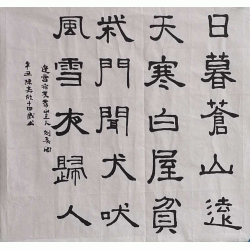 日暮蒼山遠
天寒白屋貧
柴門聞犬吠
風雪夜歸人
逢雪宿芙蓉山主人 劉長卿
辛丑